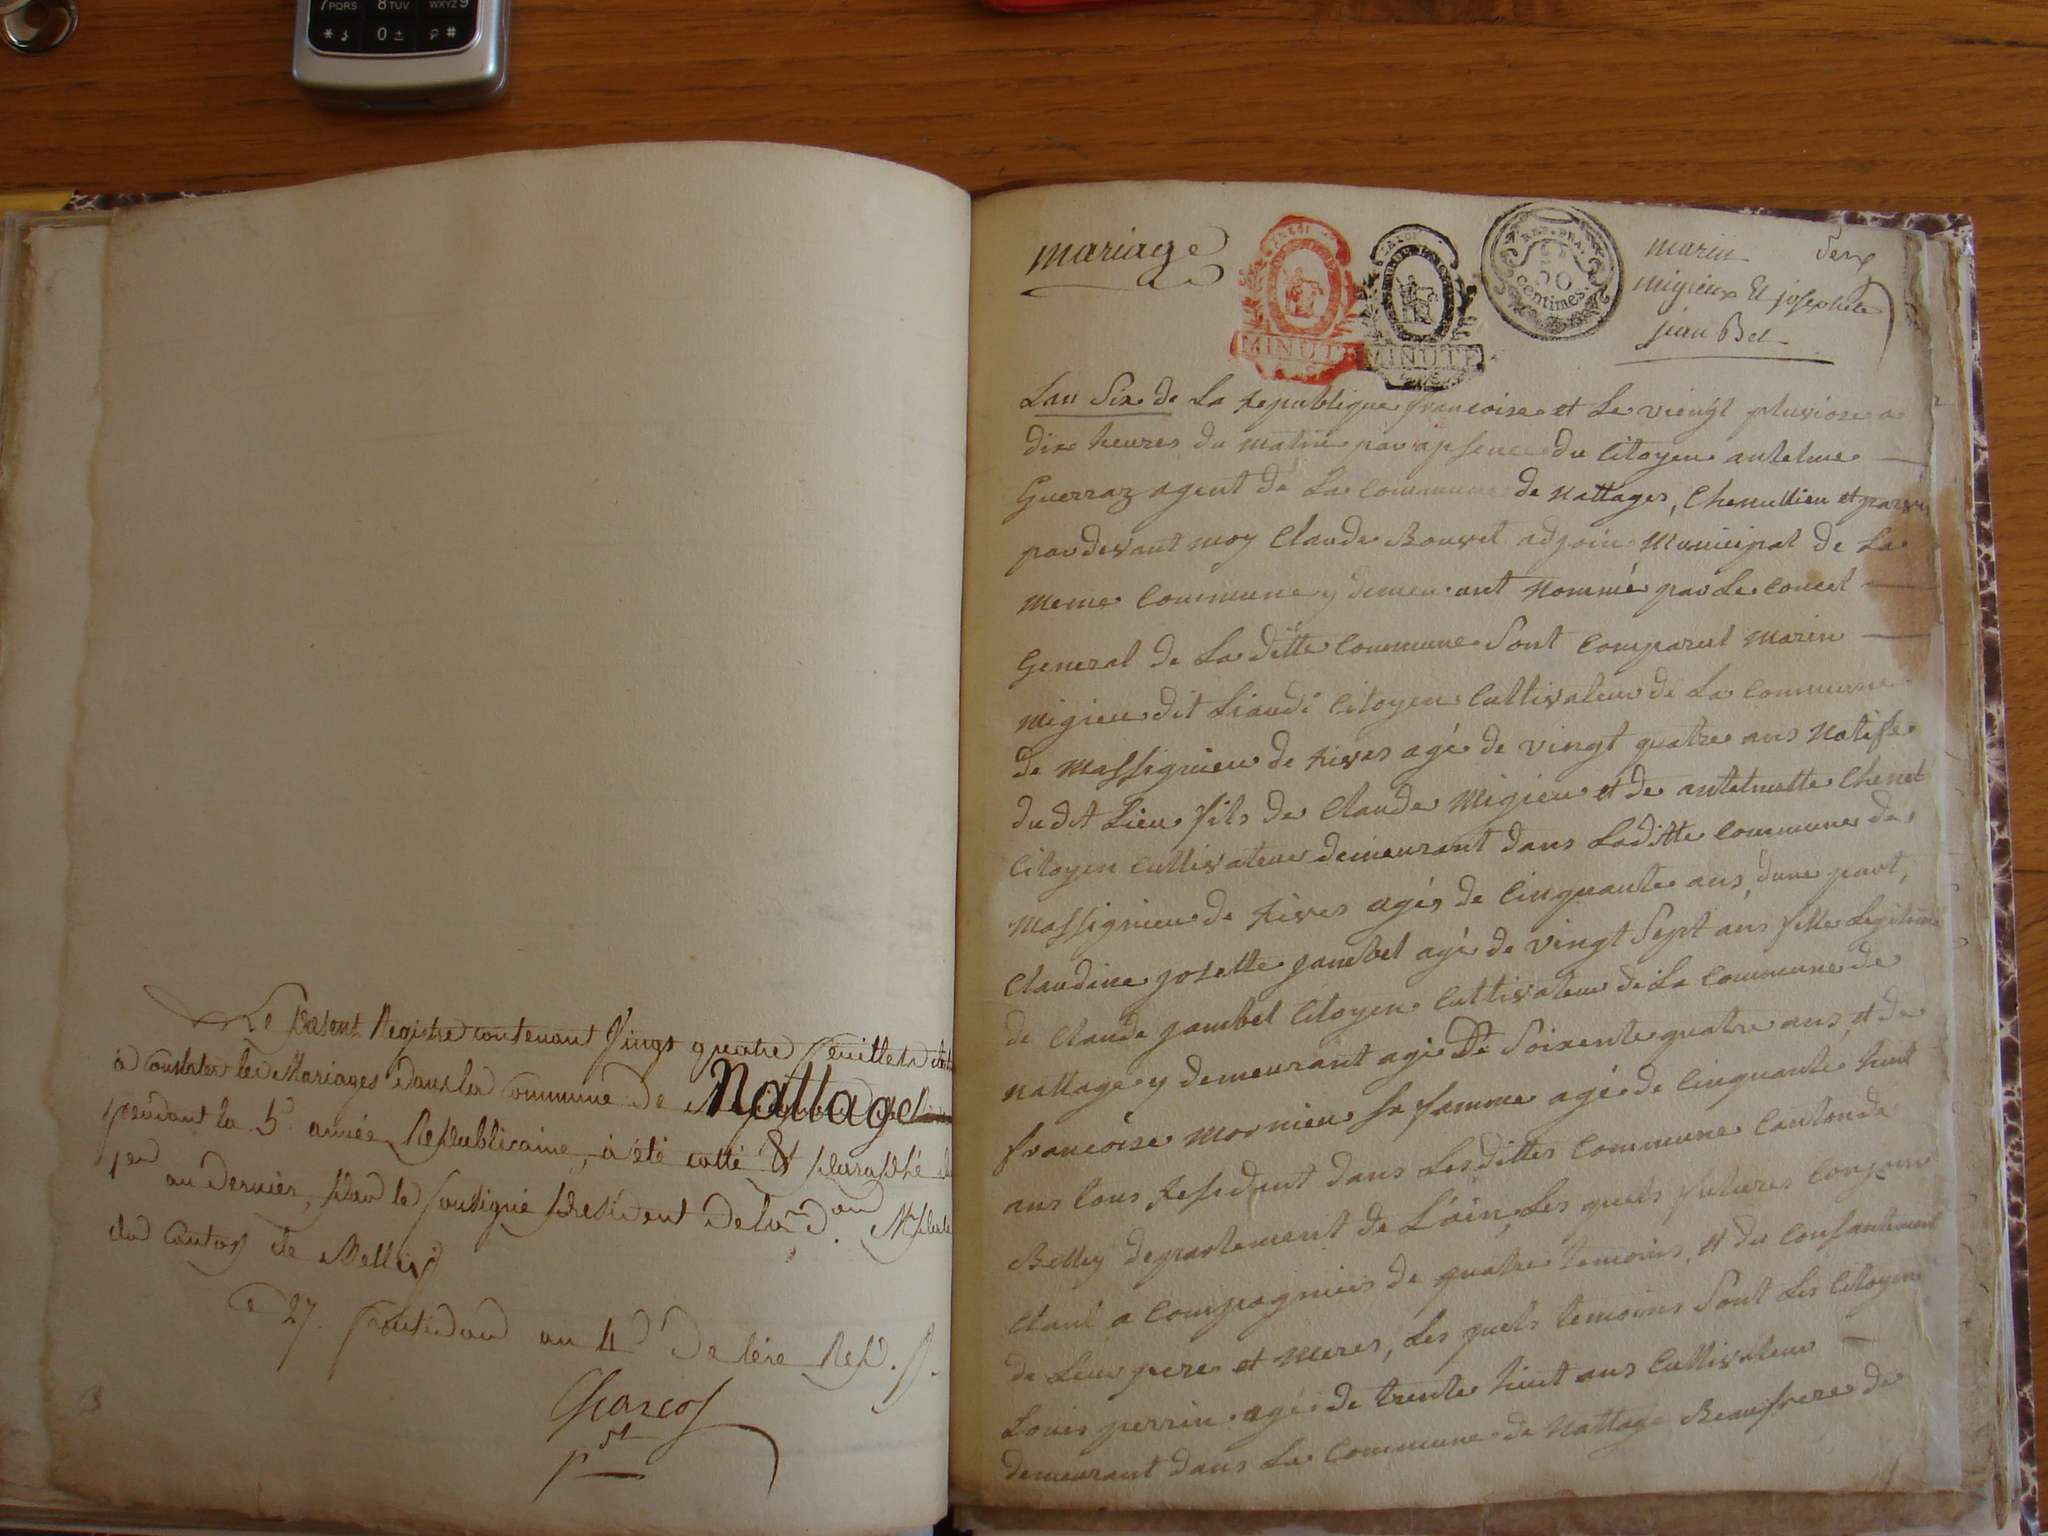 7PQRS 8TUV WXYZ9
* 0 ± #
Le présent Registre contenant Vingt quatre feuillets
à constater les Mariages dans la Commune de Nattage
pendant la 5e année Republicaine, à été cotté & paraphé
1er au dernier, par le soussigné président de
du Canton de Belley
27. fructidor an 4e De l'ère Rep.
pdt
mariage
MINUTE
MINUTE
REP. FRA.
50
centimes
marin deux
migieux Et josephete
jean Bel
Lan Six de La republique francoise et Le viengt pluviose a
dix heures du matin par apsence du Citoyen antelme
Guerraz agent de La commune de Nattages, Chemillieu et parve
par devant moy Claude Bouvet adjoin Municipal de La
meme Commune y demeurant Nommé par Le Concel
General de La ditte Commune Sont Comparut Marin
migieu dit Liaudi Citoyen Cultivateur de La Commune
de Massignieu de Rives agé de vingt quatre ans Natife
du dit Lieu fils de Claude Migieu et de antelmette Chenet
Citoyen Cultivateur demeurant dans Laditte Commune de
Massignieu de Rives agés de Cinquante ans, dune part,
Claudine josette jambet agé de vingt Sept ans fille Legitime
de Claude jambet Citoyen Cultivateur de La Commune de
Nattage y demeurant agé De Soixente quatre ans, et de
francoise Mornieu sa famme agé de Cinquante huit
ans tous Residant dans Lesdittes Commune Canton de
Belley departement de L'ain, Les quels futures Conjoin
Etant a Compagniés de quatre temoins, et du Consantement
de Leur pere et Meres, Les quels temoins Sont Les Citoyen
Louis perrin agé de trente huit ans Cultivateur
demeurant dans La Commune de Nattage Beaufrere de